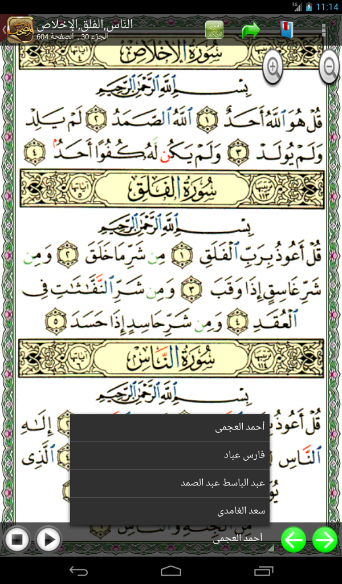 11:14
الناس,الفلق,الإخلاص
الجزء 30 , الصفحة 604
سُورَةُ الإِخْلَاصِ
بِسْمِ اللَّهِ الرَّحْمَٰنِ الرَّحِيمِ
قُلْ هُوَ اللَّهُ أَحَدٌ ١ اللَّهُ الصَّمَدُ ٢ لَمْ يَلِدْ
وَلَمْ يُولَدْ ٣ وَلَمْ يَكُن لَّهُ كُفُوًا أَحَدٌ ٤
سُورَةُ الْفَلَقِ
بِسْمِ اللَّهِ الرَّحْمَٰنِ الرَّحِيمِ
قُلْ أَعُوذُ بِرَبِّ الْفَلَقِ ١ مِن شَرِّ مَا خَلَقَ ٢ وَمِن
شَرِّ غَاسِقٍ إِذَا وَقَبَ ٣ وَمِن شَرِّ النَّفَّاثَاتِ فِي
الْعُقَدِ ٤ وَمِن شَرِّ حَاسِدٍ إِذَا حَسَدَ ٥
سُورَةُ النَّاسِ
بِسْمِ اللَّهِ الرَّحْمَٰنِ الرَّحِيمِ
قُلْ أَعُوذُ
إِلَٰهِ
النَّاسِ
الَّذِي
أحمد العجمى
فارس عباد
عبد الباسط عبد الصمد
سعد الغامدى
وَالنَّاسِ
أحمد العجمى